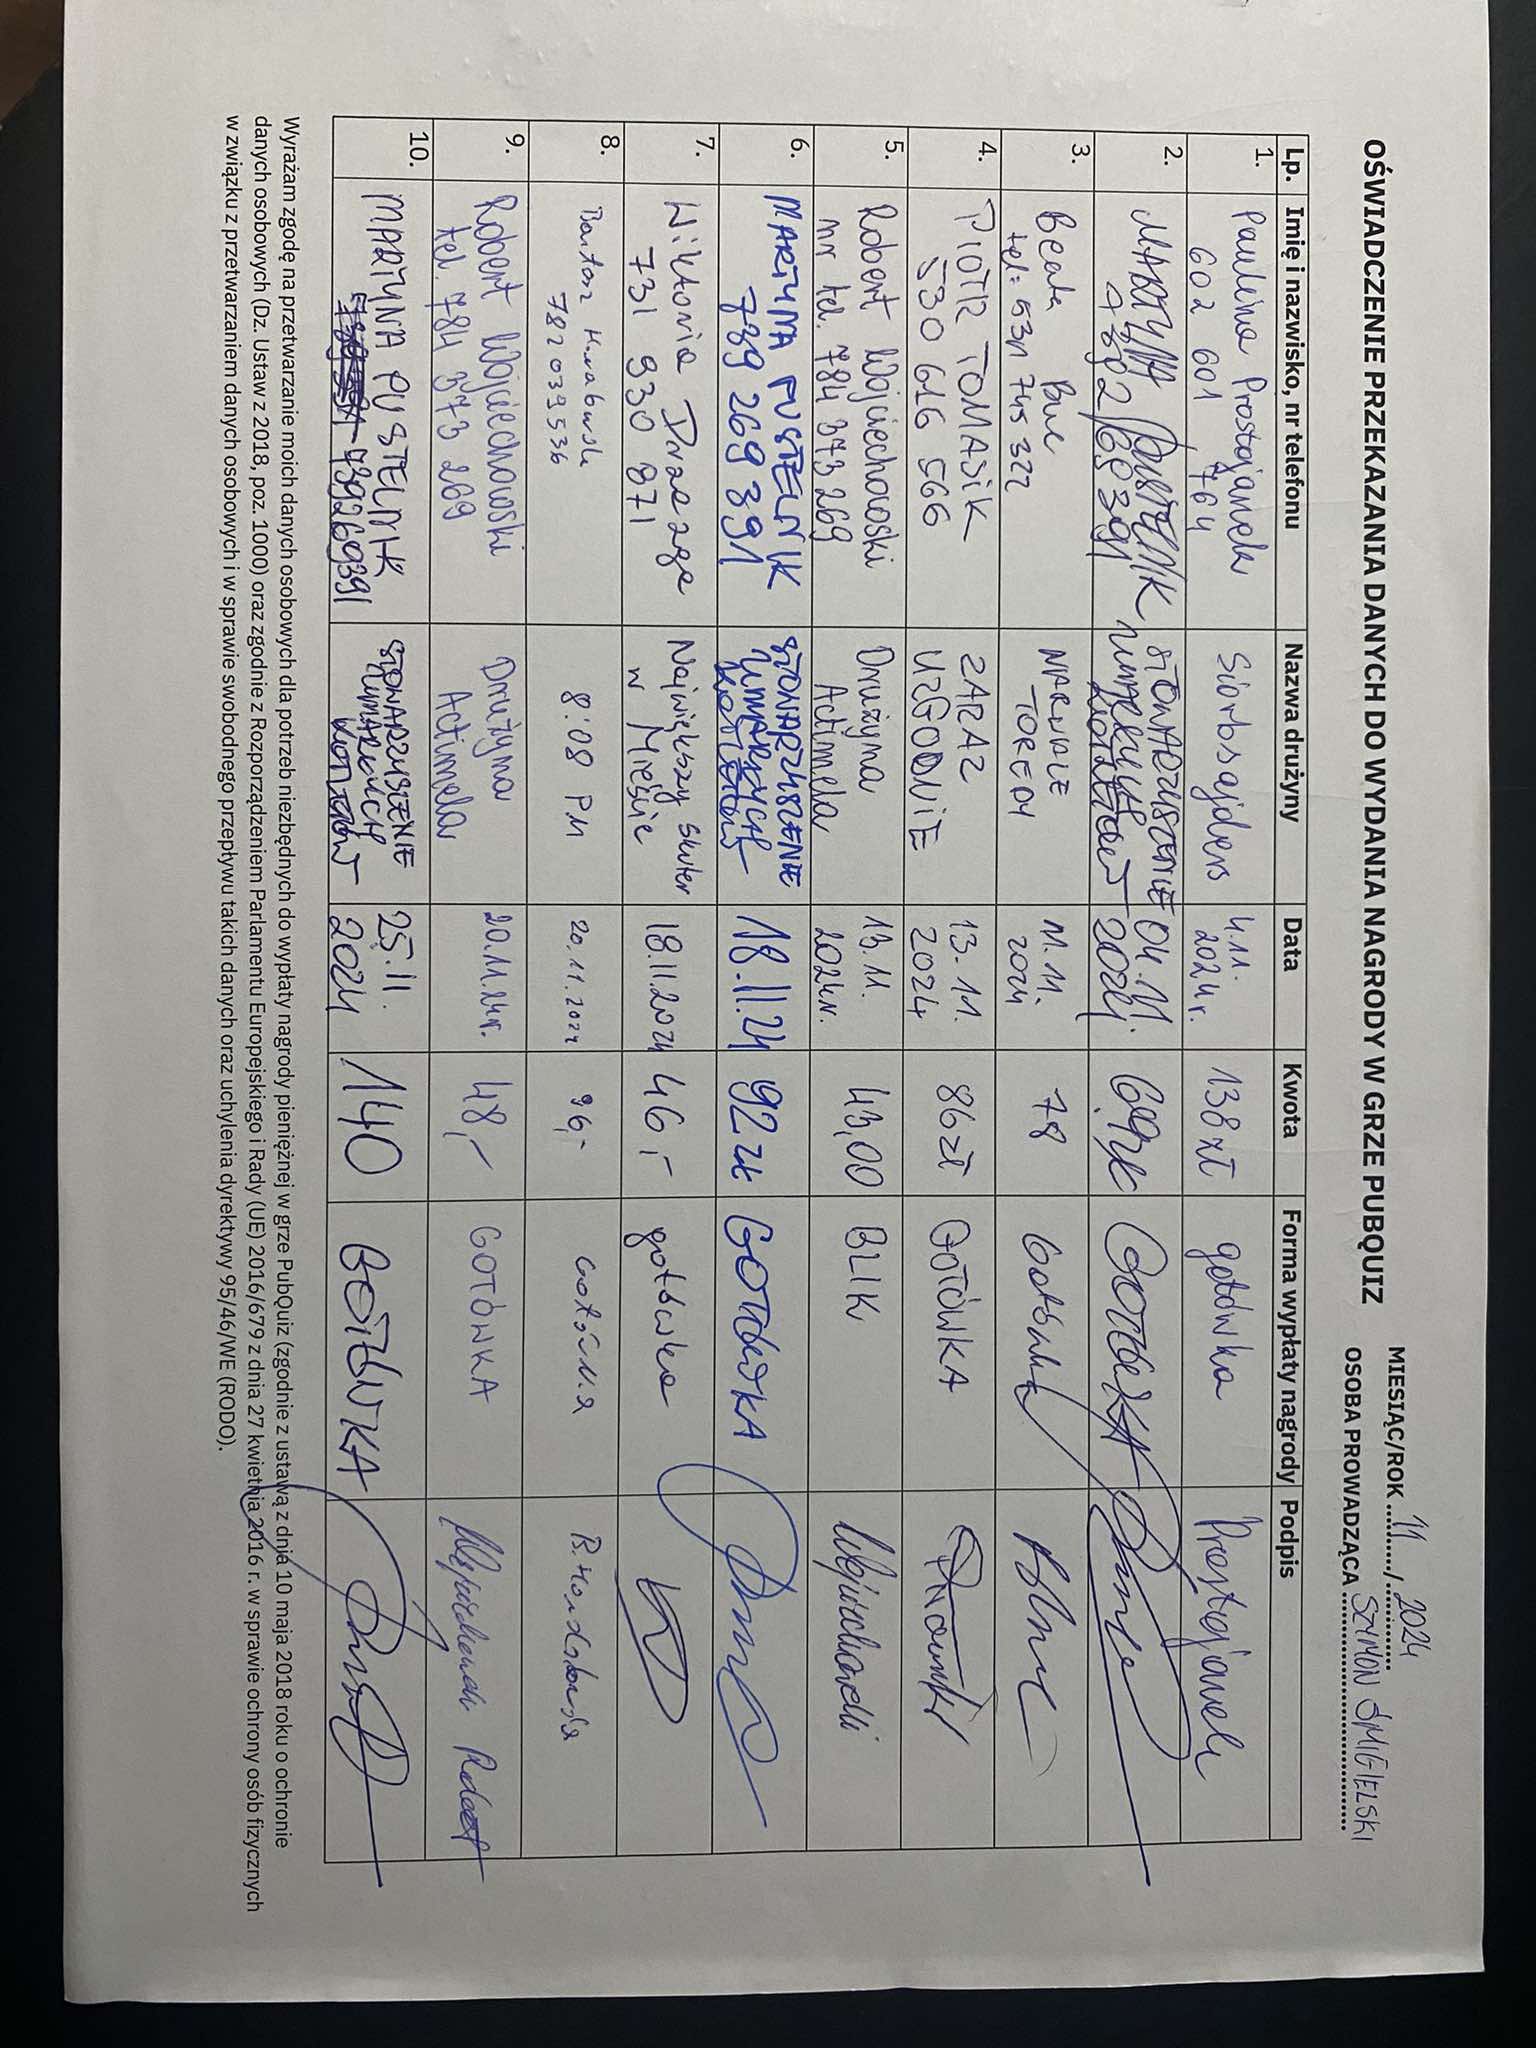 OŚWIADCZENIE PRZEKAZANIA DANYCH DO WYDANIA NAGRODY W GRZE PUBQUIZ
MIESIĄC/ROK 11 / 2024
OSOBA PROWADZĄCA SZYMON ŚMIGIELSKI
Lp. Imię i nazwisko, nr telefonu Nazwa drużyny Data Kwota Forma wypłaty nagrody Podpis
1. Paulina Prostojanek Siorbsajders 4.11. 138 zł gotówka Prostojanek
602 601 764 2024r.
2. MARTYNA PUSTELNIK STOWARZYSZENIE 04.11. 69zł GOTÓWKA
UMARŁYCH 2024
3. Beata Buc NARWALE 11.11. 78 Gotówka
tel: 531 745 322 TOREDY 2024
4. PIOTR TOMASIK ZARAZ 13.11. 86 zł GOTÓWKA
530 616 566 UZGODNIE 2024
5. Robert Wojciechowski Drużyna 13.11. 43,00 BLIK Wojciechowski
nr tel. 784 373 269 Actimela 2024r.
6. MARTYNA PUSTELNIK STOWARZYSZENIE 18.11.24 92 zł GOTÓWKA
739 269 391 UMARŁYCH
7. Wiktoria Największy skuter 18.11.2024 46,- gotówka
731 930 871 w Mieście
8. Bartosz 8:08 PM 20.11.2024 96,- Gotówka
782 039 536
9. Robert Wojciechowski Drużyna 20.11.24r. 48,- GOTÓWKA Wojciechowski Robert
tel. 784 373 269 Actimela
10. MARTYNA PUSTELNIK STOWARZYSZENIE 25.11. 140 GOTÓWKA
739269391 UMARŁYCH 2024
Wyrażam zgodę na przetwarzanie moich danych osobowych dla potrzeb niezbędnych do wypłaty nagrody pieniężnej w grze PubQuiz (zgodnie z ustawą z dnia 10 maja 2018 roku o ochronie
danych osobowych (Dz. Ustaw z 2018, poz. 1000) oraz zgodnie z Rozporządzeniem Parlamentu Europejskiego i Rady (UE) 2016/679 z dnia 27 kwietnia 2016 r. w sprawie ochrony osób fizycznych
w związku z przetwarzaniem danych osobowych i w sprawie swobodnego przepływu takich danych oraz uchylenia dyrektywy 95/46/WE (RODO).